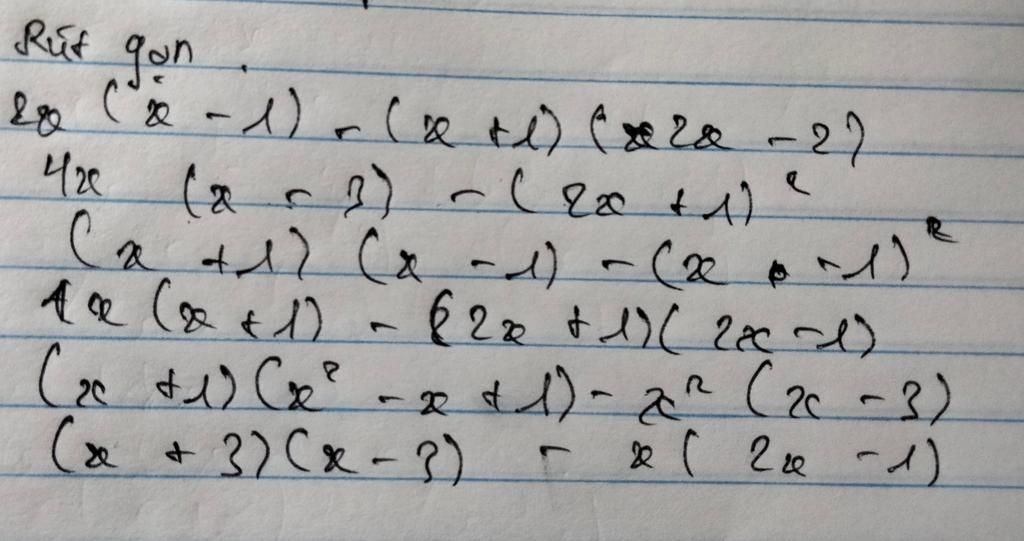 Rút gọn.
2x (x - 1) - (x + 1) (2x - 2)
4x (x - 3) - (2x + 1)²
(x + 1) (x - 1) - (x - 1)²
x (x + 1) - (2x + 1)(2x - 1)
(x + 1)(x² - x + 1) - x² (x - 3)
(x + 3)(x - 3) - x( 2x - 1)